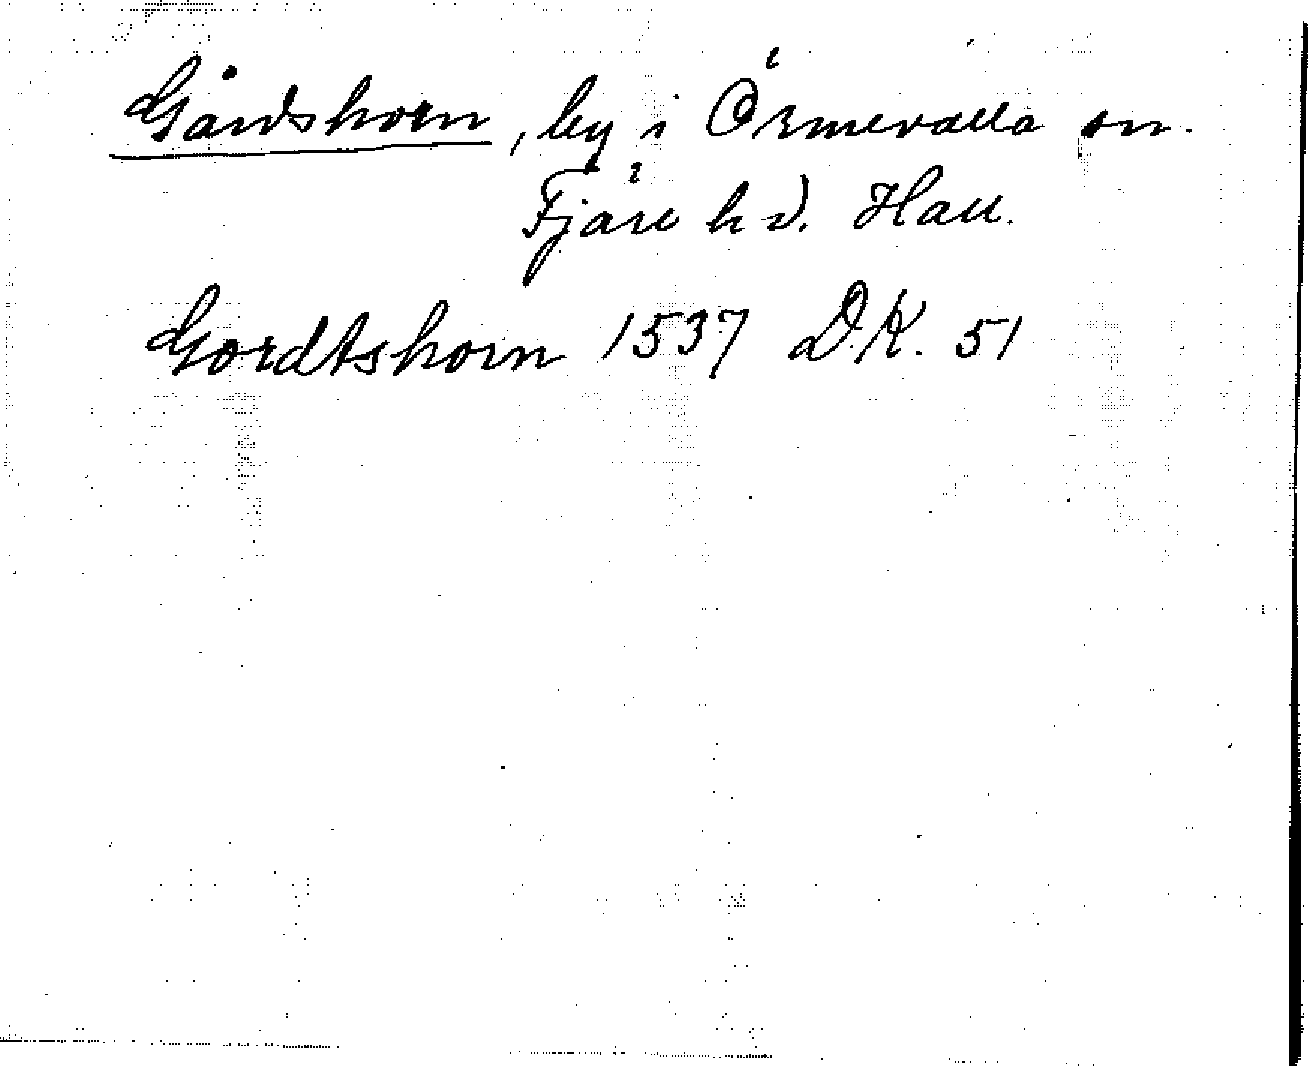 Gårdshorn, by i Ölmevalla sn.
Fjäre hd. Hall.
Gordtshorn 1537 D.K. 51